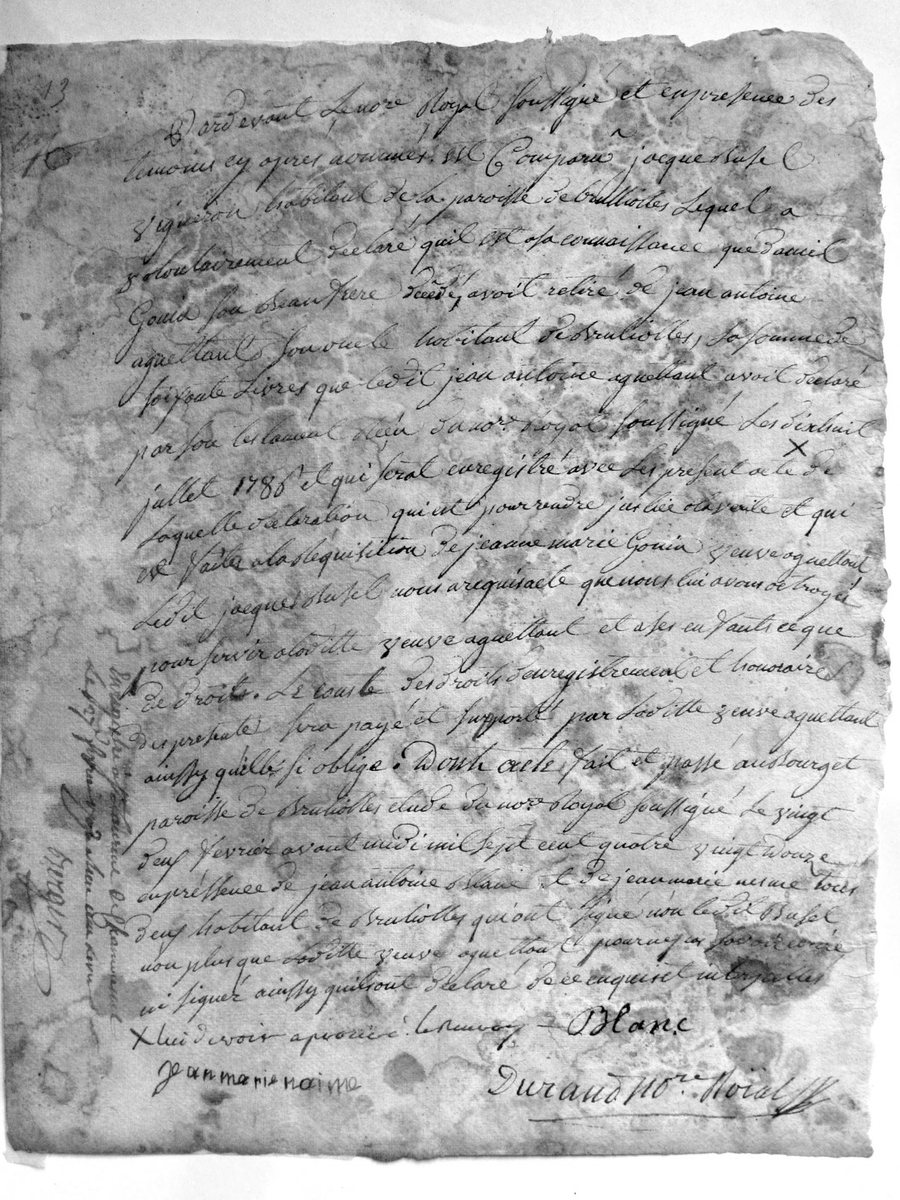 13
Pardevant Le nore Royal soussigné et en presence des
temoins cy apres nommés est Comparu jacque Busel
vigneron habitant de la paroisse de brulliolles Lequel a
volontairement declaré quil est a sa connaissance que
Gonin son beau frere decedé, avoit retiré de jean antoine
aquettant son oncle habitant de Brulliolles, La somme de
soisante Livres que ledit jean antoine aquettant avoit declaré
par son testament reçu du nore Royal soussigné Le dixhuit X
juillet 1786 et qui serat enregistré avec Les present acte de
Laquelle declaration qui est pour rendre justice a la verite et qui
est faite a la Requisition de jeanne marie Gonin veuve aquettant
Ledit jacques Busel nous a requis acte que nous lui avons octroyé
pour servir a laditte veuve aquettant et a ses enfants ce que
de droits. Le couste des droits denregistrement et honoraires
des presente sera payé et supporté par Laditte veuve aquettant
ainssy quelle si oblige. Dont acte fait et passé au Bourget
paroisse de Brulliolles etude du nore Royal soussigné Le vingt
deux fevrier avant midi mil sept cent quatre vingt douze
en pressence de jean antoine Blanc et de jean marie nesme tous
deux habitant de Brulliolles qui ont signé non ledit Busel
non plus que Laditte veuve aquettant pour ne pas savoir ecrire
ni signer ainssy quils ont declaré de ce enquis et interpellés
X lui devoir aprouvé le renvoy - Blanc
jean marie naime
Durand Nore Roial